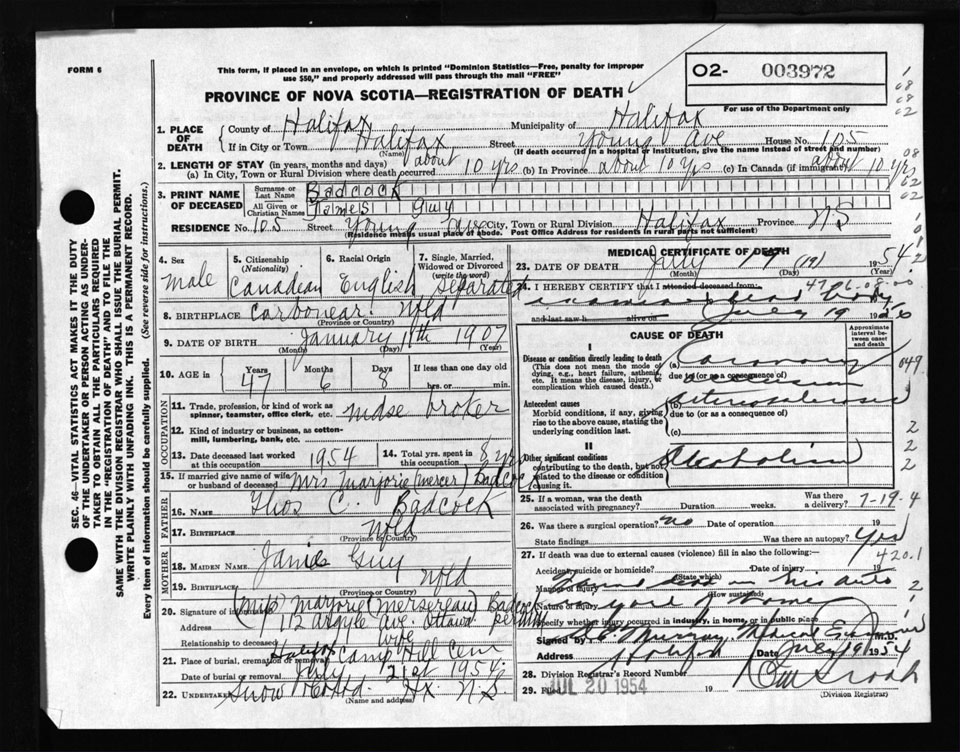 FORM 6
This form, if placed in an envelope, on which is printed "Dominion Statistics—Free, penalty for improper use $50," and properly addressed will pass through the mail "FREE"
02- 003972
For use of the Department only
PROVINCE OF NOVA SCOTIA—REGISTRATION OF DEATH
SEC. 46—VITAL STATISTICS ACT MAKES IT THE DUTY
OF THE UNDERTAKER OR PERSON ACTING AS UNDER-
TAKER TO OBTAIN ALL THE PARTICULARS REQUIRED
IN THE "REGISTRATION OF DEATH" AND TO FILE THE
SAME WITH THE DIVISION REGISTRAR WHO SHALL ISSUE THE BURIAL PERMIT.
WRITE PLAINLY WITH UNFADING INK. THIS IS A PERMANENT RECORD.
Every item of information should be carefully supplied. (See reverse side for instructions.)
1. PLACE OF DEATH County of Halifax Municipality of Halifax
If in City or Town Halifax (Name) Street Young Ave House No. 105
(If death occurred in a hospital or institution, give the name instead of street and number)
2. LENGTH OF STAY (in years, months and days)
(a) In City, Town or Rural Division where death occurred about 10 yrs (b) In Province about 10 yrs (c) In Canada (if immigrant) about 10 yrs
3. PRINT NAME OF DECEASED Surname or Last Name Badcock
All Given or Christian Names James Guy
RESIDENCE No. 105 Street Young Ave City, Town or Rural Division Halifax Province N.S
(Residence means usual place of abode. Post Office Address for residents in rural parts not sufficient)
4. Sex male
5. Citizenship (Nationality) Canadian
6. Racial Origin English
7. Single, Married, Widowed or Divorced (write the word) Separated
8. BIRTHPLACE Carbonear Nfld (Province or Country)
9. DATE OF BIRTH January 11th 1907 (Month) (Day) (Year)
10. AGE in Years 47 Months 6 Days 8 If less than one day old hrs. or min.
OCCUPATION
11. Trade, profession, or kind of work as spinner, teamster, office clerk, etc. mdse broker
12. Kind of industry or business, as cotton-mill, lumbering, bank, etc.
13. Date deceased last worked at this occupation 1954
14. Total yrs. spent in this occupation 8 yrs
15. If married give name of wife or husband of deceased Mrs Marjorie (Mercer) Badcock
FATHER
16. Name Thos C. Badcock
17. Birthplace Nfld (Province or Country)
MOTHER
18. Maiden Name Guy
19. Birthplace Nfld (Province or Country)
20. Signature of informant (Mrs) Marjorie (Mersereau) Badcock
Address 112 Argyle Ave. Ottawa
Relationship to deceased wife
21. Place of burial, cremation or removal Halifax Camp Hill Cem
Date of burial or removal July 21st 1954
22. Undertaker Snow & Co Ltd. Hx. N.S. (Name and address)
MEDICAL CERTIFICATE OF DEATH
23. DATE OF DEATH July 19 (19) 1954 (Month) (Day) (Year)
24. I HEREBY CERTIFY that I attended deceased from:
examined dead body
and last saw h alive on July 19 19
CAUSE OF DEATH
Approximate interval between onset and death
I
Disease or condition directly leading to death (This does not mean the mode of dying, e.g., heart failure, asthenia, etc. It means the disease, injury, or complication which caused death.)
(a) Coronary
due to (or as a consequence of)
Antecedent causes
Morbid conditions, if any, giving rise to the above cause, stating the underlying condition last.
(b) arteriosclerosis
due to (or as a consequence of)
(c)
II
Other significant conditions contributing to the death, but not related to the disease or condition causing it.
Alcoholism
25. If a woman, was the death associated with pregnancy? Duration weeks. Was there a delivery? 7-19-4
26. Was there a surgical operation? no Date of operation 19
State findings Was there an autopsy? yes
27. If death was due to external causes (violence) fill in also the following: 420.1
Accident, suicide or homicide? (State which) Date of injury 19
Manner of injury Found dead in his auto (How sustained)
Nature of injury yard of home
Specify whether injury occurred in industry, in home, or in public place
Signed by Murray Medical Examiner M.D.
Address Halifax Date July 19 1954
28. Division Registrar's Record Number
29. Filed JUL 20 1954 (Division Registrar)